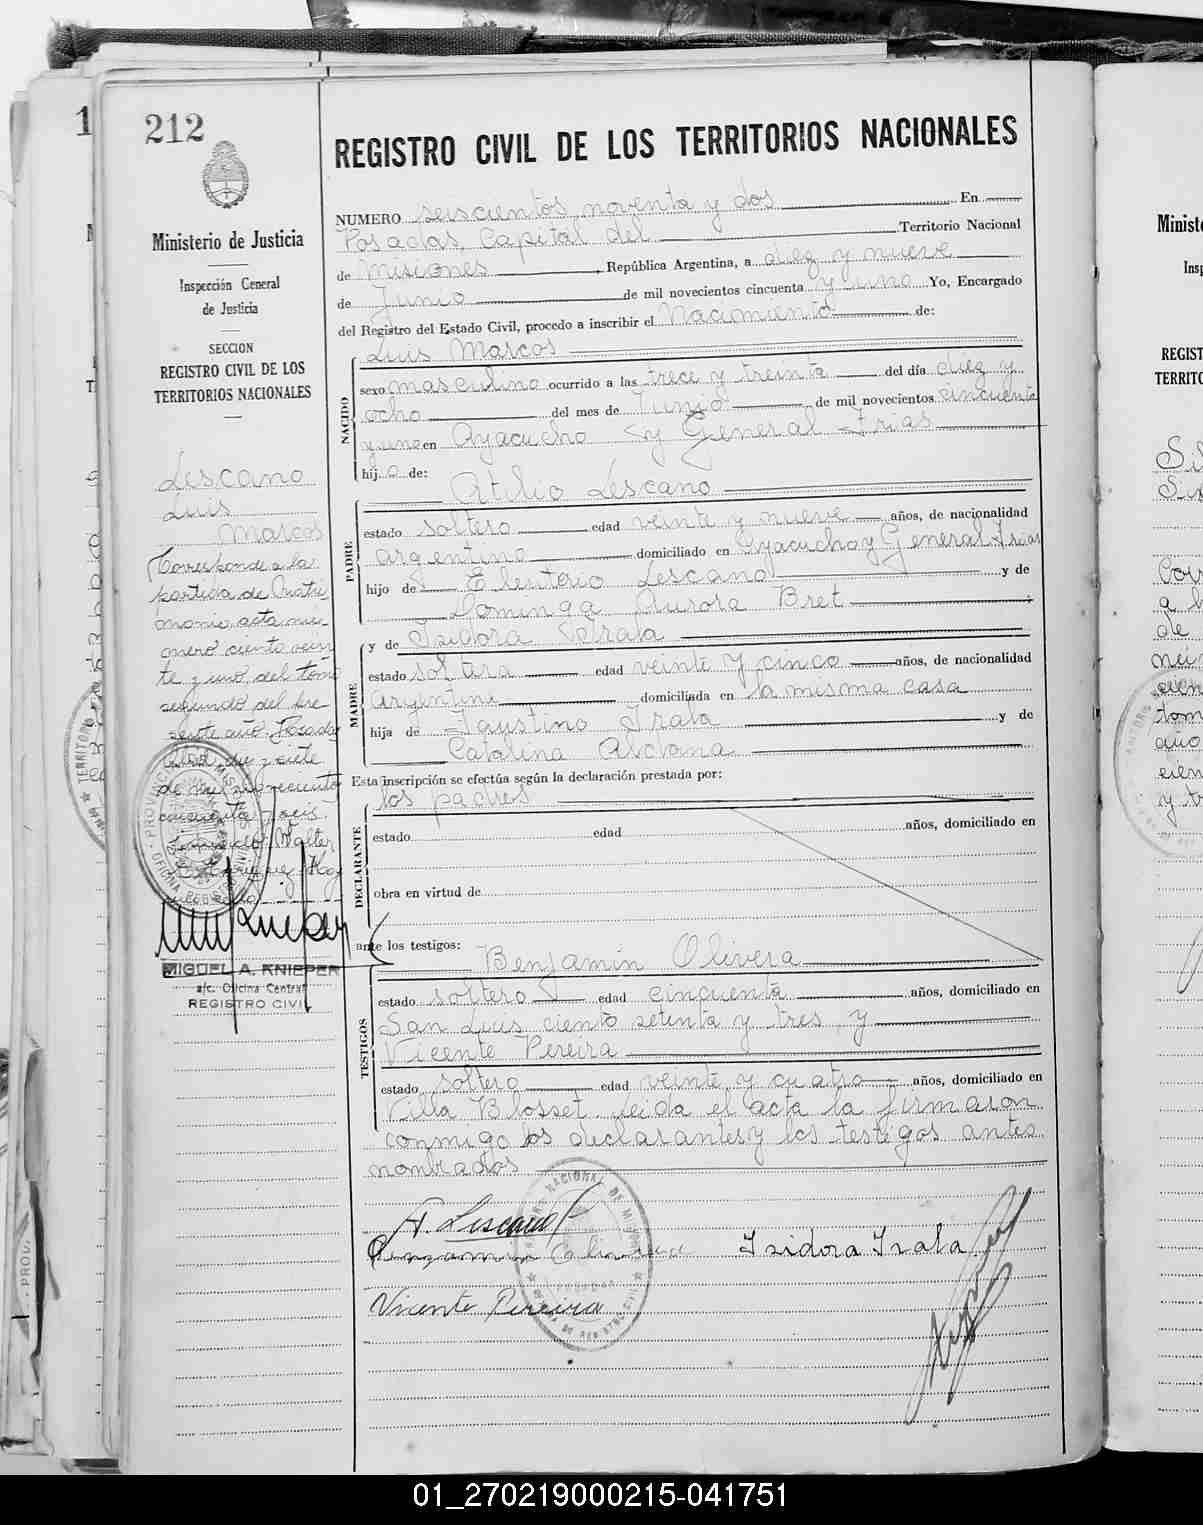 212
Ministerio de Justicia
Inspección General
de Justicia
SECCION
REGISTRO CIVIL DE LOS
TERRITORIOS NACIONALES
Lescano
Luis
Marcos
Corresponde a la
partida de Matri
monio acta nú-
mero ciento vein
te y uno del tomo
segundo del pre
sente año. Posadas
diez y siete
de mil novecientos
cincuenta y seis.
Walter
MIGUEL A. KNIEPER
a/c. Oficina Central
REGISTRO CIVIL
REGISTRO CIVIL DE LOS TERRITORIOS NACIONALES
NUMERO seiscientos noventa y dos En
Posadas, Capital del Territorio Nacional
de Misiones, República Argentina, a diez y nueve
de Junio de mil novecientos cincuenta y uno Yo, Encargado
del Registro del Estado Civil, procedo a inscribir el Nacimiento de:
Luis Marcos
NACIDO
sexo masculino ocurrido a las trece y treinta del día diez y
ocho del mes de Junio de mil novecientos cincuenta
y uno en Ayacucho y General Frias
hijo de:
Atilio Lescano
PADRE
estado soltero edad veinte y nueve años, de nacionalidad
argentino domiciliado en Ayacucho y General Frias
hijo de Eleuterio Lescano y de
Dominga Aurora Bret
y de Isidora Irala
MADRE
estado soltera edad veinte y cinco años, de nacionalidad
Argentina domiciliada en la misma casa
hija de Faustino Irala y de
Catalina Aldana
Esta inscripción se efectúa según la declaración prestada por:
los padres
DECLARANTE
estado edad años, domiciliado en
obra en virtud de
ante los testigos:
Benjamin Olivera
TESTIGOS
estado soltero edad cincuenta años, domiciliado en
San Luis ciento setenta y tres, y
Vicente Pereira
estado soltero edad veinte y cuatro años, domiciliado en
Villa Blosset. Leida el acta la firmaron
conmigo los declarantes y los testigos antes
nombrados
A. Lescano
Isidora Irala
Vicente Pereira
01_270219000215-041751